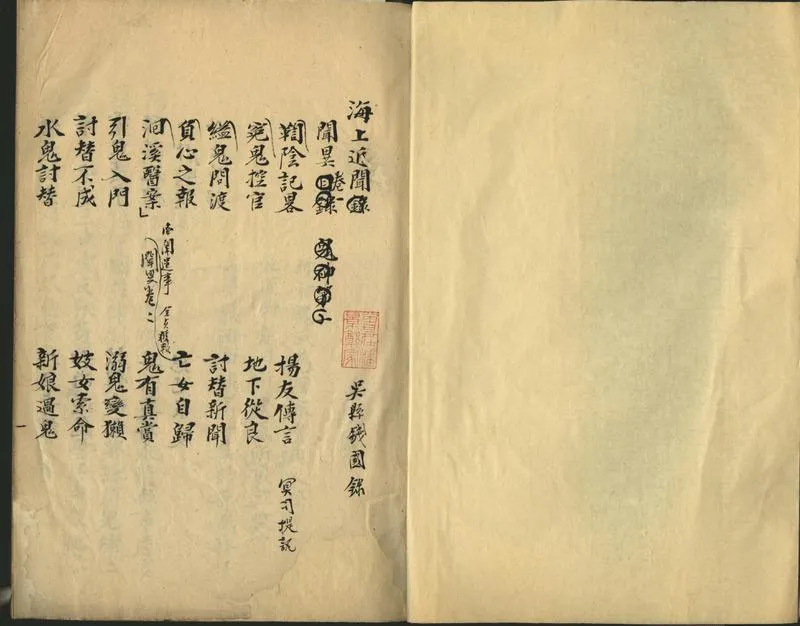 海上近聞錄
吳縣錢國錄
聞異卷一
目錄
鞫陰記畧
楊友傳言
冥司提訊
冤鬼控官
地下從良
縊鬼問渡
討替新聞
負心之報
亡女自歸
洄溪醫案」
聞異卷二
鬼有真賞
引鬼入門
溺鬼變獺
討替不成
妓女索命
水鬼討替
新娘遇鬼